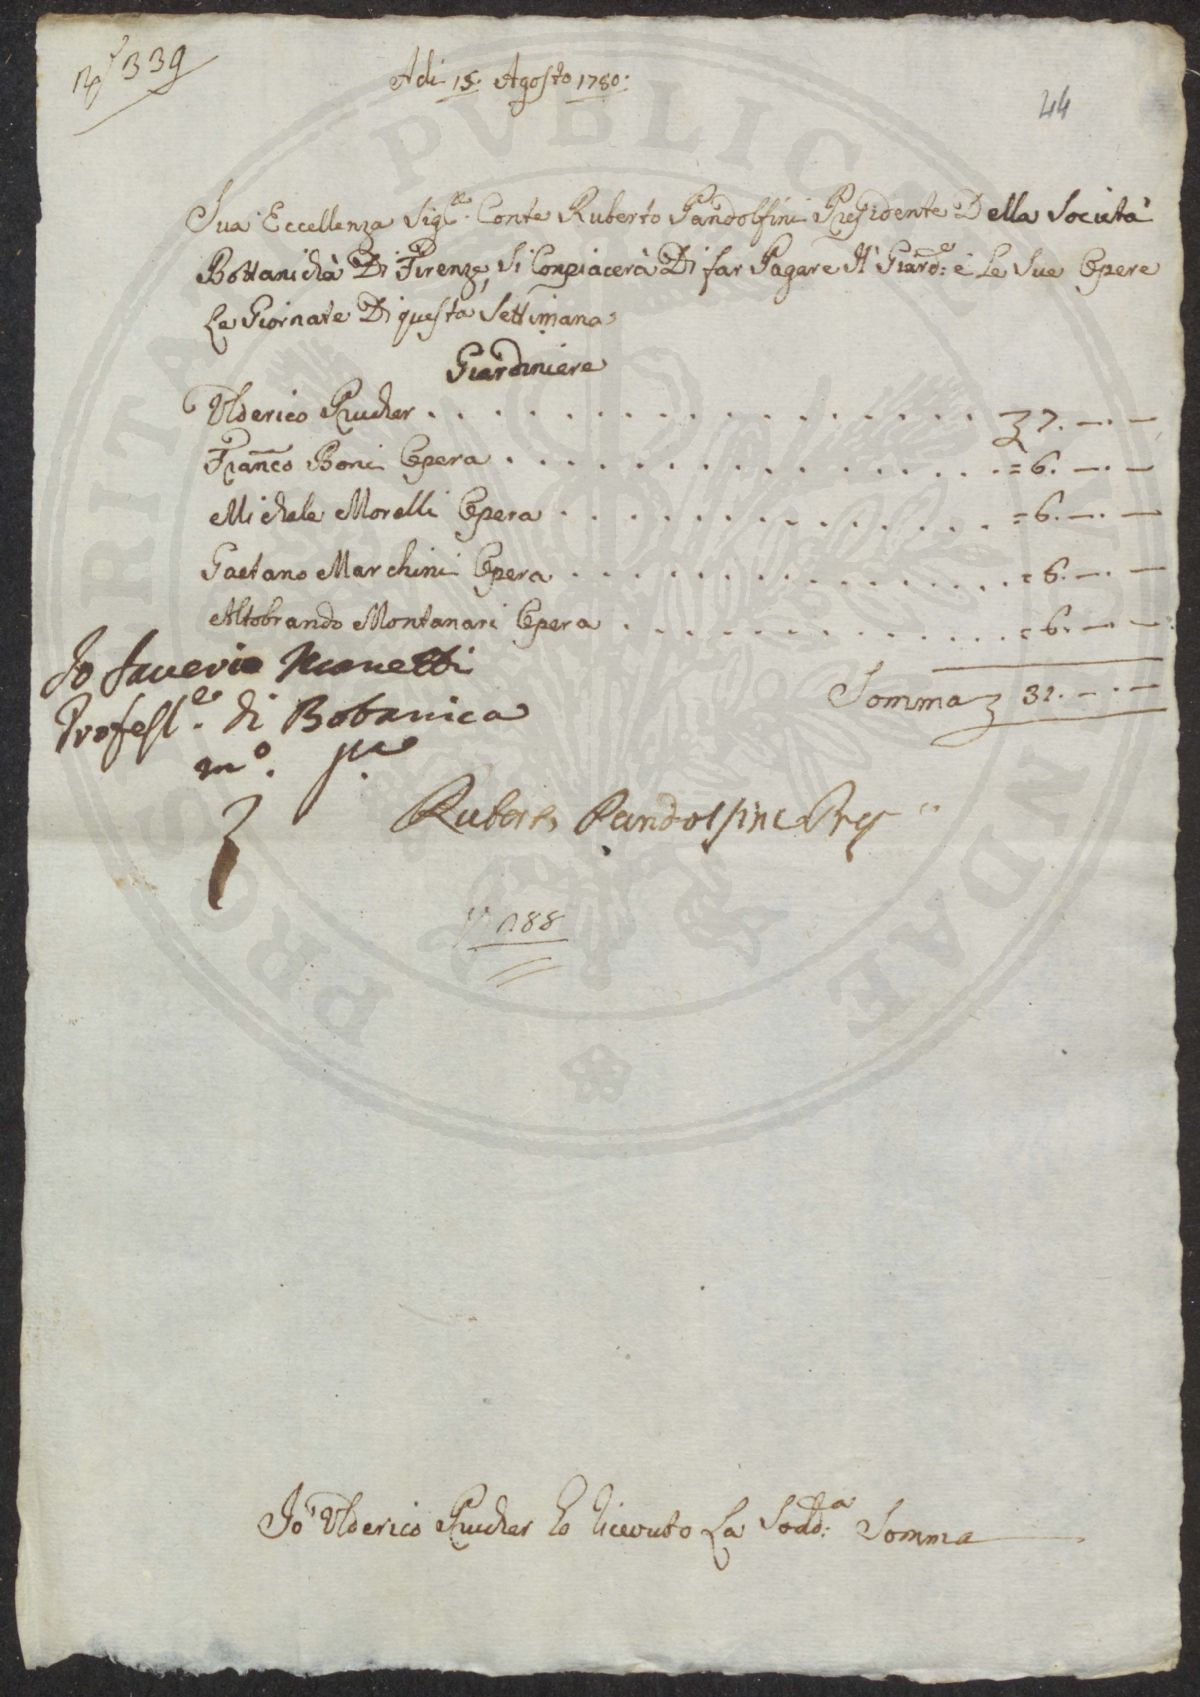 339
Adi 15. Agosto 1780.
44
Sua Eccellenza Sig.re Conte Ruberto Pandolfini Presidente Della Società
Bottanichà Di Firenze, Si Conpiacerà Di far Pagare Al Giard:e e Le Sue Opere
Le Giornate Di questa Settimana
Giardiniere
Ulderico Prucher . . . . . . . . . . . . . . . . . . 7. — . —
Franco Boni Opera . . . . . . . . . . . . . . . . = 6. — . —
Michele Morelli Opera . . . . . . . . . . . . . . = 6. — . —
Gaetano Marchini Opera . . . . . . . . . . . . . . = 6. — . —
Altobrando Montanari Opera . . . . . . . . . . . . = 6. — . —
Somma 31. — . —
Io Saverio Manetti
Profess.e di Botanica
m.o p.a
Ruberto Pandolfini Pres
188
Io Ulderico Prucher ò ricevuto La Sodd:a Somma
PRO PUBLICA